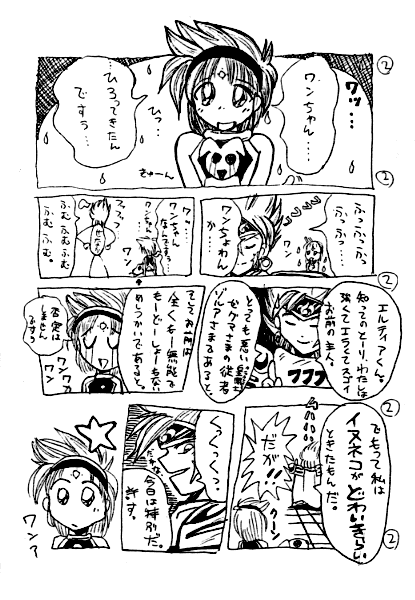 ②
ワッ…
ワンちゃん…
…
ひっ…
ひろってきたん
ですぅ…
きゅーん
②
ふっふっふっ
ふっ…
ワン
ワンちょわん
か…
フフフッ
ワンちゃん
なんですぅ…
ワン
ふむ ふむふむ
ふむ ふむ。
②
エルティアくん。
知ってのとーり、わたしは
強くてエラくてスゴイ
お前の主人。
フフフ
とっても悪い皇魔
ゼケマさまの従者
ゾルアさまである。
そしてお前は
全くもー無能で
もーどーしょーもない
めしつかいであると。
否定は
しません
ですぅ
ワンワン
ワン
②
でもって私は
イヌネコがどわいきらい
ときたもんだ。
だが!!
クーン
②
くっくっくっ
だがな
今日は特別だ。
ワン?